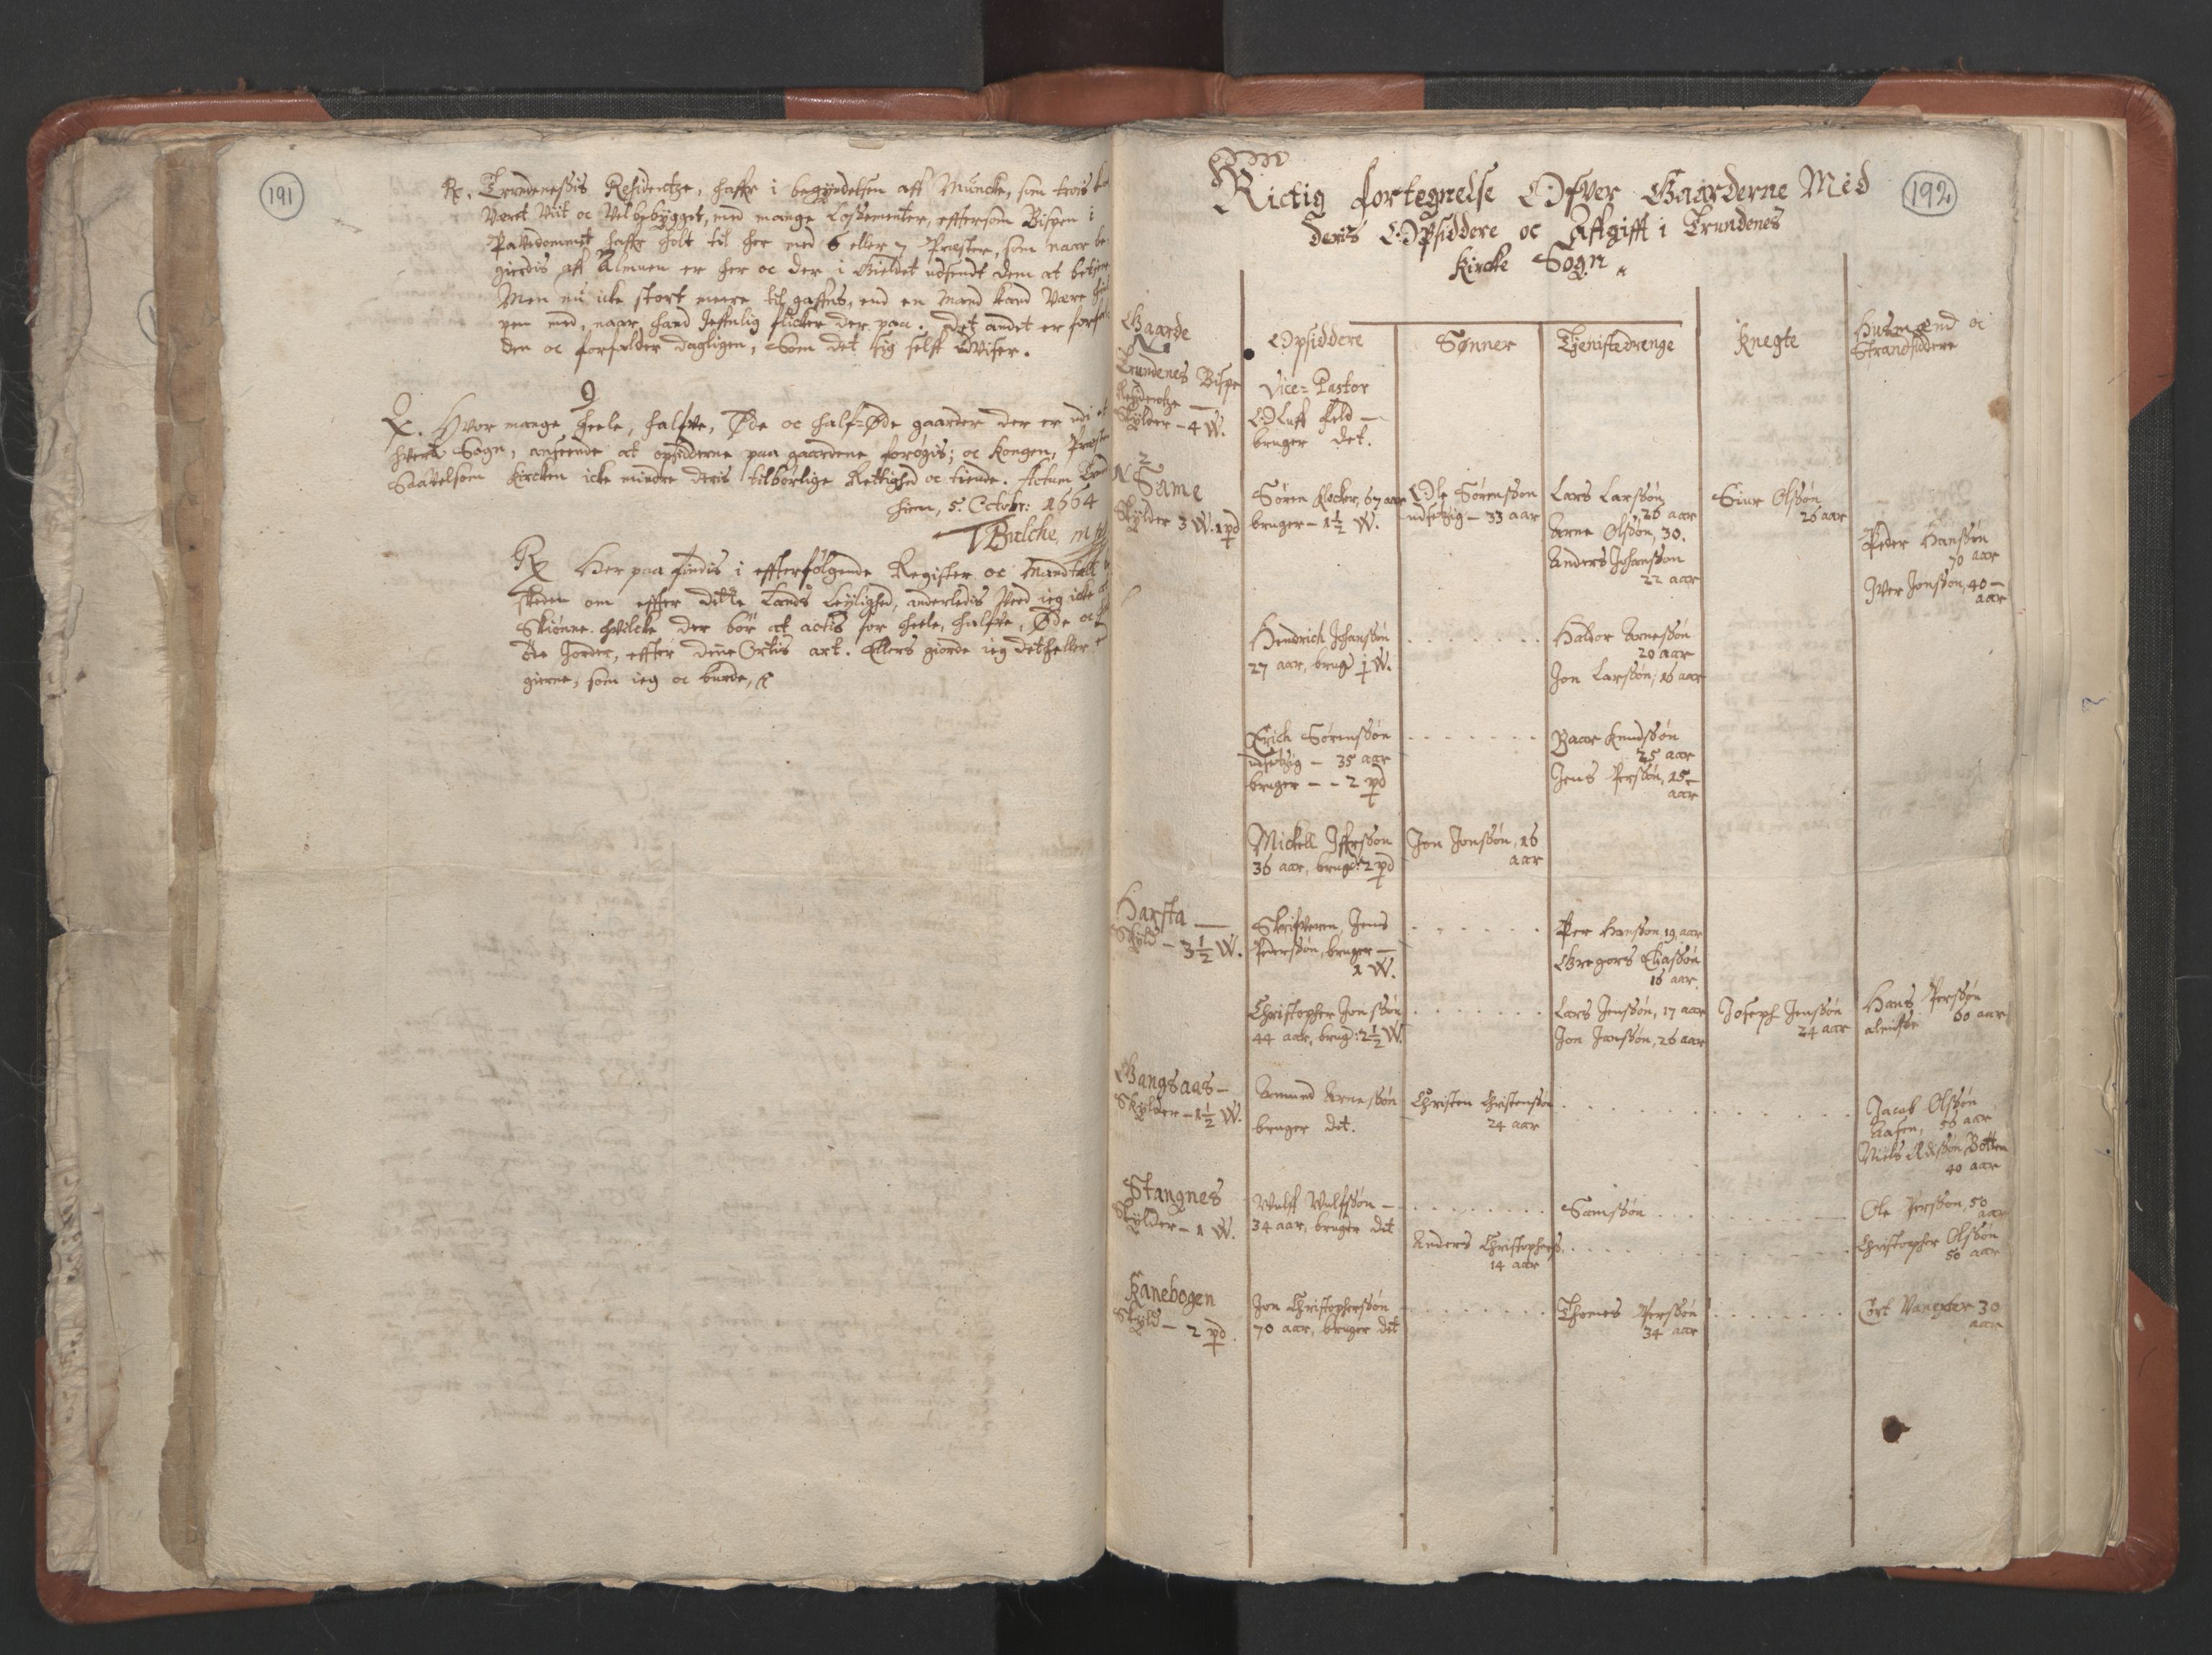 191
Rx. Trondenessis Residentze, haffr i begyndelsen aff Muncke, som trois
Veret Viit oc Velbebygget, med mange Loßementer, efftersom Bispen i
Pavedommet haffr holt til her med 6 eller 7 Præster, som naar be
gierdis aff Almuen er her oc der i Gieldet udsendt dem at betiene
Men nu icke stort meere til gaffns, end en mand kand Være
pen med, naar hand Jeffnlig flicker der paa. Det andet er forfal
den oc forfalder dagligen, Som det sig selff udViser.
9
Q. Hvor mange heele, halfve, Øde oc half=Øde gaarder der er udi et
hvert Sogn, anseende at opsidderne paa gaardene forøgis; oc Kongen, Præsten
SaaVelsom Kircken icke mindre deris tilbørlige Rettighed oc tiende. Actum Trond
hiem, 5. Octobr: 1664
Bielche, m p
Rx Her paa findis i effterfølgende Register oc Mandtall
skeden om effter dette Lands Leylighed, anderledis Veed ieg icke at
Skiønne hvilcke der bør at actis for heele, halfve, Øde oc
øde Jorder, effter denne Ortis art. Ellers giorde ieg det heller
gierne, som ieg oc burde,
192
Rictig fortegnelse Ofver Gaarderne Med
deris Opsiddere oc Affgifft i Trundenes
Kircke Sogn
Gaarde
Opsiddere
Sønner
Tjenistedrenge
Knegte
Husmænd oc
Strandsiddere
N 1
Trundenes Bispe
Residentze —
Skylder — 4 W.
Vice=Pastor
Oluff Feld —
bruger det.
N 2
Same
Skylder 3 W. 1 pd
Søren Klocker, 67 aar
bruger — 1½ W.
Ole Sørenssøn
udsetzig — 33 aar
Lars Larssøn
26 aar
Arne Olssøn, 30.
Anders Johanssøn
22 aar
Siur Olssøn
26 aar
Peder Hanssøn
70 aar
Iver Jonssøn, 40 —
aar
Hendrich Johanssøn
27 aar, brug: 1 W.
Haldor Arnessøn
20 aar
Jon Larssøn, 16 aar
Erich Sørenssøn
udsetzig — 35 aar
bruger — – 2 pd
Baar Knudssøn
25 aar
Jens Perssøn, 15 —
aar
Mickell Iffrssøn
36 aar, brug: 2 pd
Jon Jonssøn, 16
aar
Harsta —
Skyld — 3½ W.
Skrifveren Jens
Pederssøn, bruger —
1 W.
Per Hanssøn, 19 aar
Gregors Eliassøn
16 aar.
Christopher Jonssøn
44 aar, brug: 2½ W.
Lars Jenssøn, 17 aar
Jon Jonssøn, 26 aar
Joseph Jenssøn
24 aar
Hans Perssøn
60 aar
Gangsaas —
Skylder — 1½ W.
Amund Arnessøn
bruger det.
Christen Christenssøn
24 aar
Jacob Olssøn
Aasen, 56 aar
Niels Botten
40 aar
Stangnes
Skylder — 1 W.
Wulff Wulffssøn —
34 aar, bruger det
Samssøn
Ole Perssøn, 50
aar
Anders Christophers.
14 aar
Christopher Olssøn
50 aar
Kanebogen
Skyld — 2 pd.
Jon Christopherssøn
70 aar, bruger det
Thomes Perssøn
34 aar
Cort 30
aar